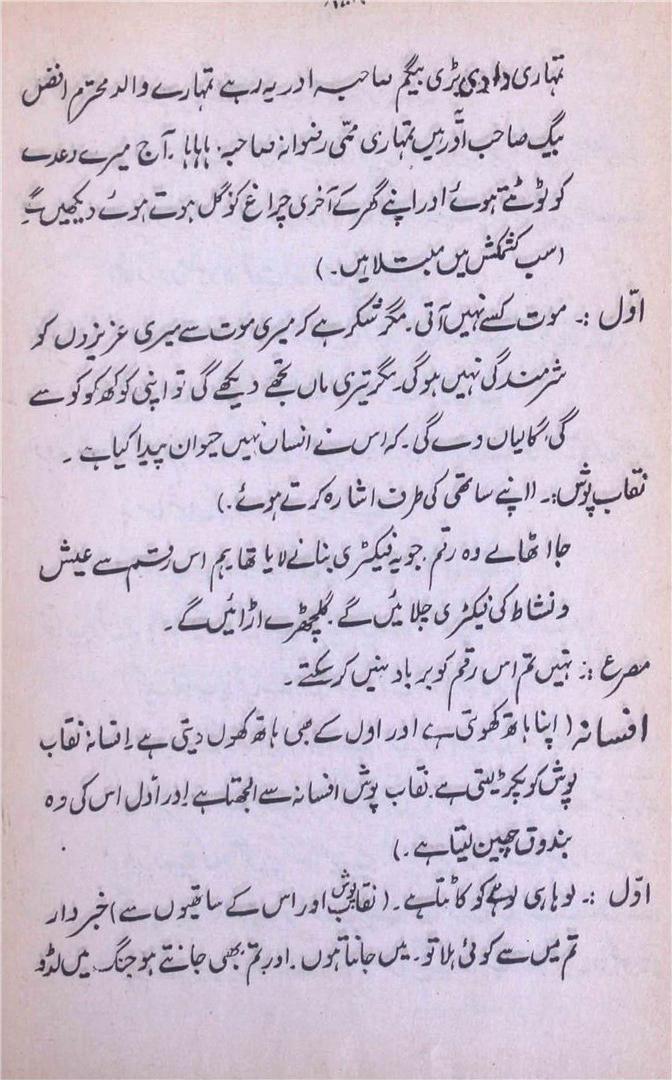 تمہاری دادی بڑی بیگم صاحبہ اور یہ رہے تمہارے والد محترم افضل
بیگ صاحب اور ہیں تمہاری ممّی رضوانہ صاحبہ. ہاہاہا. آج میرے وعدے
کو ٹوٹتے ہوئے اور اپنے گھر کے آخری چراغ کو گل ہوتے ہوئے دیکھیں گے
(سب کشمکش میں مبتلا ہیں۔)
اوّل :۔ موت کسے نہیں آتی۔ مگر شکر ہے کہ میری موت سے میری عزیزوں کو
شرمندگی نہیں ہوگی۔ مگر تیری ماں تجھے دیکھے گی تو اپنی کوکھ کو کوسے
گی، گالیاں دے گی۔ کہ اس نے انسان نہیں حیوان پیدا کیا ہے۔
نقاب پوش:۔ (اپنے ساتھی کی طرف اشارہ کرتے ہوئے۔)
جا اٹھالے وہ رقم. جو یہ فیکٹری بنانے لایا تھا. ہم اس رقم سے عیش
و نشاط کی فیکٹری چلائیں گے. گلچھڑے اڑائیں گے۔
مصرع :۔ نہیں تم اس رقم کو برباد نہیں کر سکتے۔
افسانہ ( اپنا ہاتھ کھوتی ہے اور اول کے بھی ہاتھ کھول دیتی ہے۔ افسانہ نقاب
پوش کو پکڑ لیتی ہے. نقاب پوش افسانہ سے الجھتا ہے۔ اور اوّل اس کی وہ
بندوق چھین لیتا ہے۔)
اوّل :۔ لوہا ہی لوہے کو کاٹتا ہے۔ ( نقاب پوش اور اس کے ساتھیوں سے) خبردار
تم میں سے کوئی ہلا تو۔ میں جانتا ہوں. اور تم بھی جانتے ہو جنگ میں لڈو